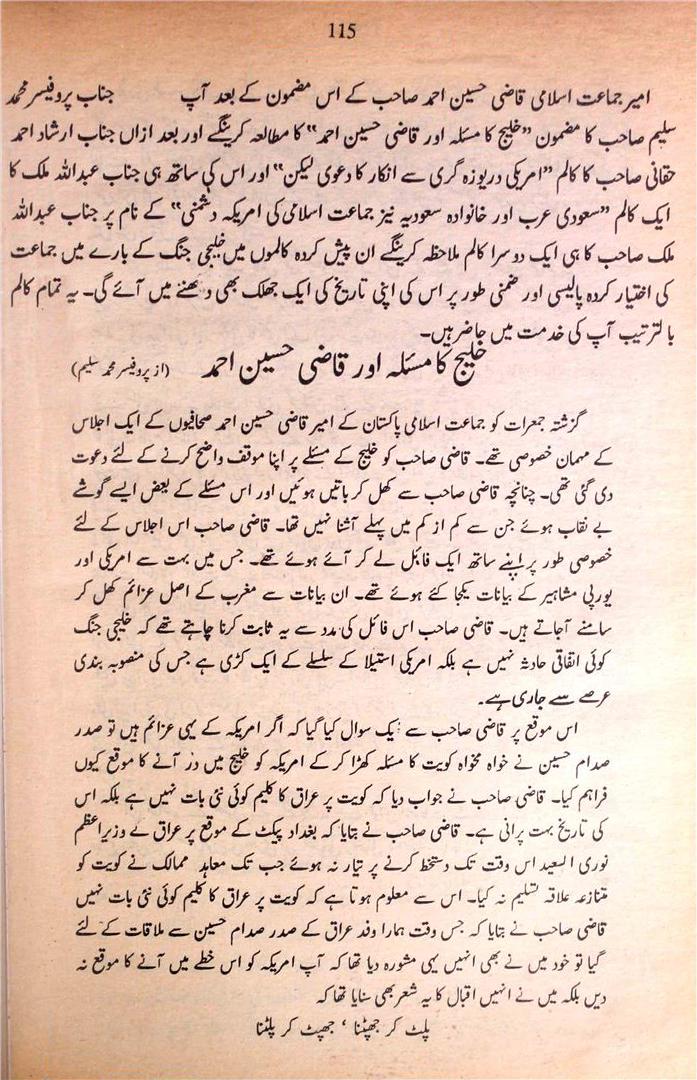 115
امیر جماعت اسلامی قاضی حسین احمد صاحب کے اس مضمون کے بعد آپ جناب پروفیسر محمد
سلیم صاحب کا مضمون ”خلیج کا مسئلہ اور قاضی حسین احمد“ کا مطالعہ کرینگے اور بعد ازاں جناب ارشاد احمد
حقانی صاحب کا کالم ”امریکی دریوزہ گری سے انکار کا دعوی لیکن“ اور اس کی ساتھ ہی جناب عبداللہ ملک کا
ایک کالم ”سعودی عرب اور خانوادہ سعودیہ نیز جماعت اسلامی کی امریکہ دشمنی“ کے نام پر جناب عبداللہ
ملک صاحب کا ہی ایک دوسرا کالم ملاحظہ کرینگے ان پیش کردہ کالموں میں خلیجی جنگ کے بارے میں جماعت
کی اختیار کردہ پالیسی اور ضمنی طور پر اس کی اپنی تاریخ کی ایک جھلک بھی دیکھنے میں آئے گی۔ یہ تمام کالم
بالترتیب آپ کی خدمت میں حاضر ہیں۔
خلیج کا مسئلہ اور قاضی حسین احمد (از پروفیسر محمد سلیم)
گزشتہ جمعرات کو جماعت اسلامی پاکستان کے امیر قاضی حسین احمد صحافیوں کے ایک اجلاس
کے مہمان خصوصی تھے۔ قاضی صاحب کو خلیج کے مسئلے پر اپنا موقف واضح کرنے کے لئے دعوت
دی گئی تھی۔ چنانچہ قاضی صاحب سے کھل کر باتیں ہوئیں اور اس مسئلے کے بعض ایسے گوشے
بے نقاب ہوئے جن سے کم از کم میں پہلے آشنا نہیں تھا۔ قاضی صاحب اس اجلاس کے لئے
خصوصی طور پر اپنے ساتھ ایک فائل لے کر آئے ہوئے تھے۔ جس میں بہت سے امریکی اور
یورپی مشاہیر کے بیانات یکجا کئے ہوئے تھے۔ ان بیانات سے مغرب کے اصل عزائم کھل کر
سامنے آجاتے ہیں۔ قاضی صاحب اس فائل کی مدد سے یہ ثابت کرنا چاہتے تھے کہ خلیجی جنگ
کوئی اتفاقی حادثہ نہیں ہے بلکہ امریکی استیلا کے سلسلے کے ایک کڑی ہے جس کی منصوبہ بندی
عرصے سے جاری ہے۔
اس موقع پر قاضی صاحب سے ایک سوال کیا گیا کہ اگر امریکہ کے یہی عزائم ہیں تو صدر
صدام حسین نے خواہ مخواہ کویت کا مسئلہ کھڑا کر کے امریکہ کو خلیج میں در آنے کا موقع کیوں
فراہم کیا۔ قاضی صاحب نے جواب دیا کہ کویت پر عراق کا کلیم کوئی نئی بات نہیں ہے بلکہ اس
کی تاریخ بہت پرانی ہے۔ قاضی صاحب نے بتایا کہ بغداد پیکٹ کے موقع پر عراق کے وزیراعظم
نوری السعید اس وقت تک دستخط کرنے پر تیار نہ ہوئے جب تک معاہد ممالک نے کویت کو
متنازعہ علاقہ تسلیم نہ کیا۔ اس سے معلوم ہوتا ہے کہ کویت پر عراق کا کلیم کوئی نئی بات نہیں
قاضی صاحب نے بتایا کہ جس وقت ہمارا وفد عراق کے صدر صدام حسین سے ملاقات کے لئے
گیا تو خود میں نے بھی انہیں یہی مشورہ دیا تھا کہ آپ امریکہ کو اس خطے میں آنے کا موقع نہ
دیں بلکہ میں نے انہیں اقبال کا یہ شعر بھی سنایا تھا کہ
پلٹ کر جھپٹنا ‘ جھپٹ کر پلٹنا